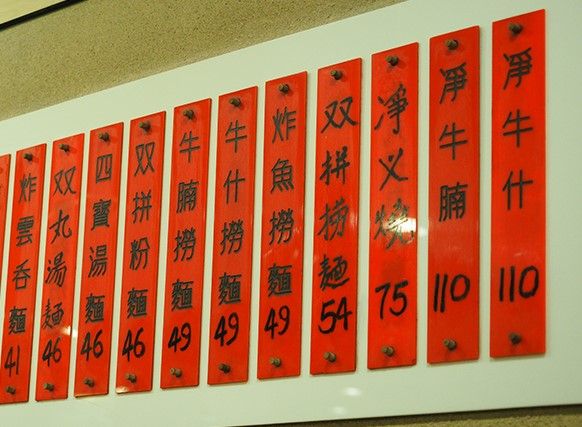 淨牛什 110
淨牛腩 110
淨义燒 75
双拼撈麵 54
炸魚撈麵 49
牛什撈麵 49
牛腩撈麵 49
双拼粉麵 46
四寶湯麵 46
双丸湯麵 46
炸雲吞麵 41